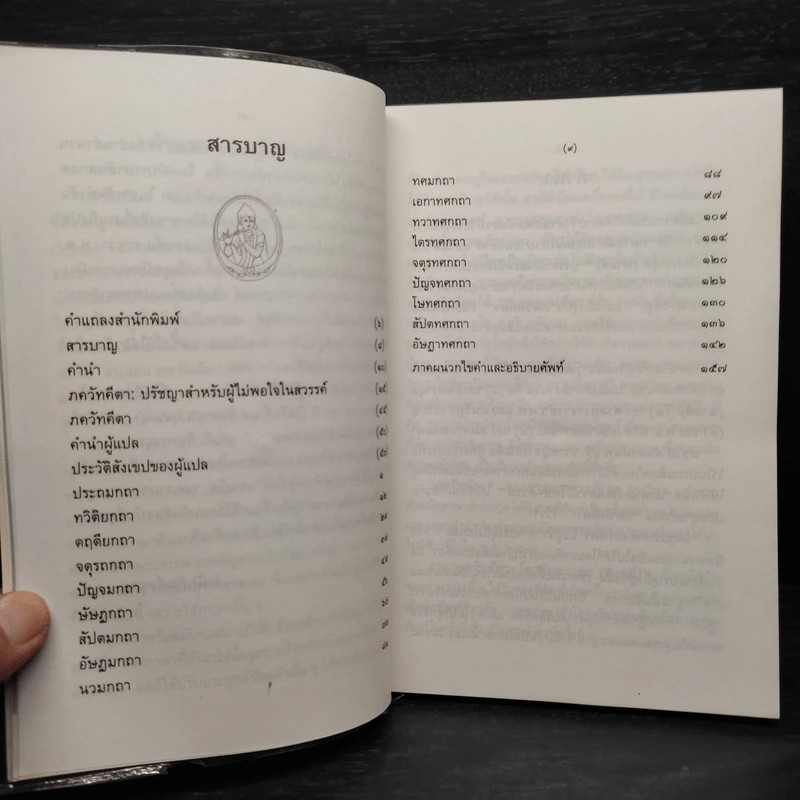 สารบาญ
คำแถลงสำนักพิมพ์ (๖)
สารบาญ (๘)
คำนำ (๑๐)
ภควัทคีตา: ปรัชญาสำหรับผู้ไม่พอใจในสวรรค์ (๑๕)
ภควัทคีตา (๔๕)
คำนำผู้แปล
ประวัติสังเขปของผู้แปล
ประถมกถา ๑
ทวิติยกถา ๑๒
ตฤตียกถา
จตุรถกถา
ปัญจมกถา
ษัษฏกถา
สัปตมกถา
อัษฏมกถา
นวมกถา
(๙)
ทศมกถา ๘๘
เอกาทศกถา ๙๗
ทวาทศกถา ๑๐๙
ไตรทศกถา ๑๑๔
จตุรทศกถา ๑๒๐
ปัญจทศกถา ๑๒๖
โษทศกถา ๑๓๐
สัปตทศกถา ๑๓๖
อัษฎาทศกถา ๑๔๒
ภาคผนวกไขคำและอธิบายศัพท์ ๑๕๗